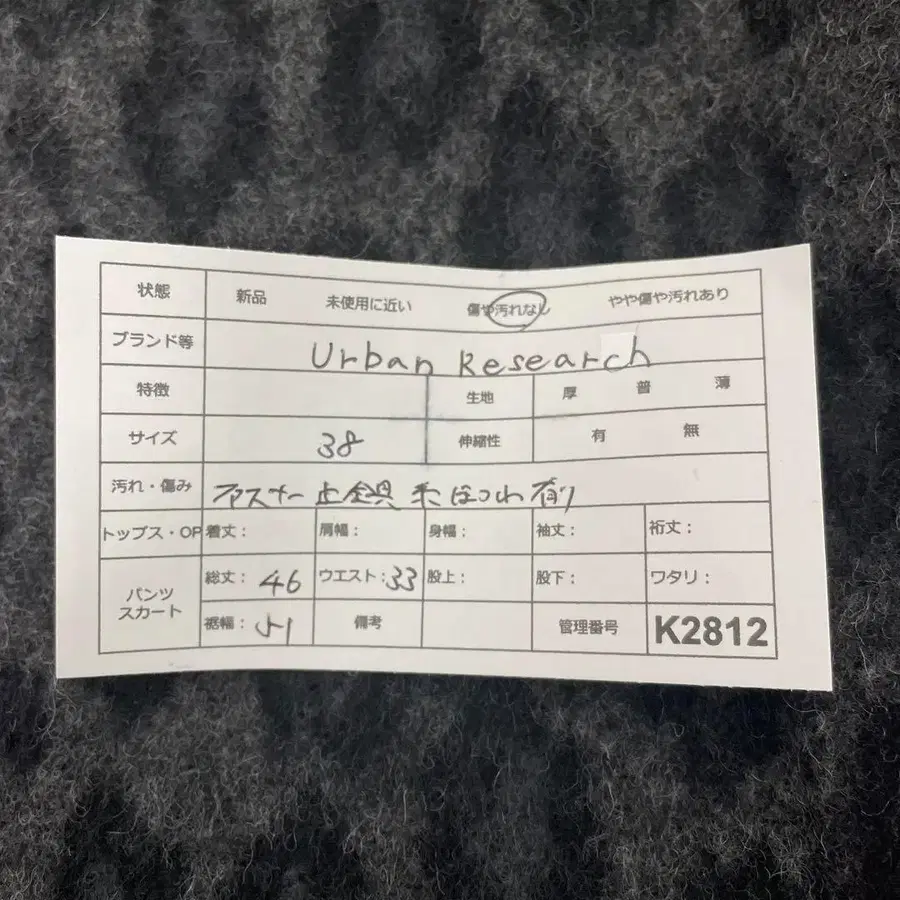 状態 新品 未使用に近い 傷や汚れなし やや傷や汚れあり
ブランド等 Urban Research
特徴 生地 厚 普 薄
サイズ 38 伸縮性 有 無
汚れ・傷み ファスナー 止金具 糸ほつれ有り
トップス・OP 着丈: 肩幅: 身幅: 袖丈: 裄丈:
パンツ スカート 総丈: 46 ウエスト: 33 股上: 股下: ワタリ:
裾幅: 51 備考 管理番号 K2812